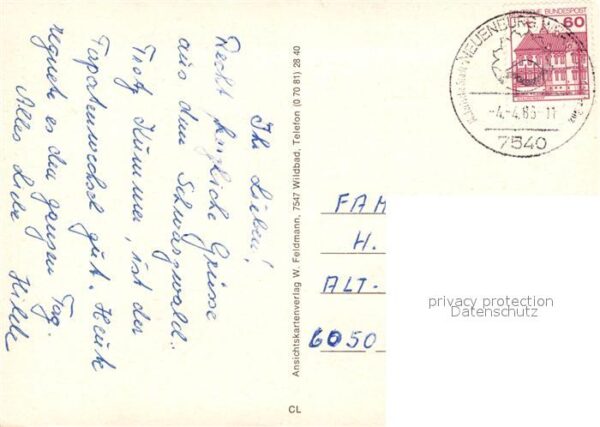 Ihr Lieben!
Recht herzliche Grüsse
aus dem Schwarzwald.
Trotz Kummer, ist der
Tapetenwechsel gut. Heute
regnete es den ganzen Tag.
Alles Liebe Hilde
Ansichtskartenverlag W. Feldmann, 7547 Wildbad, Telefon (0 70 81) 28 40
CL
DEUTSCHE BUNDESPOST
60
NEUENBÜRG
-4.-4.85-11
7540
FAM
H.
ALT-
6050
privacy protection
Datenschutz